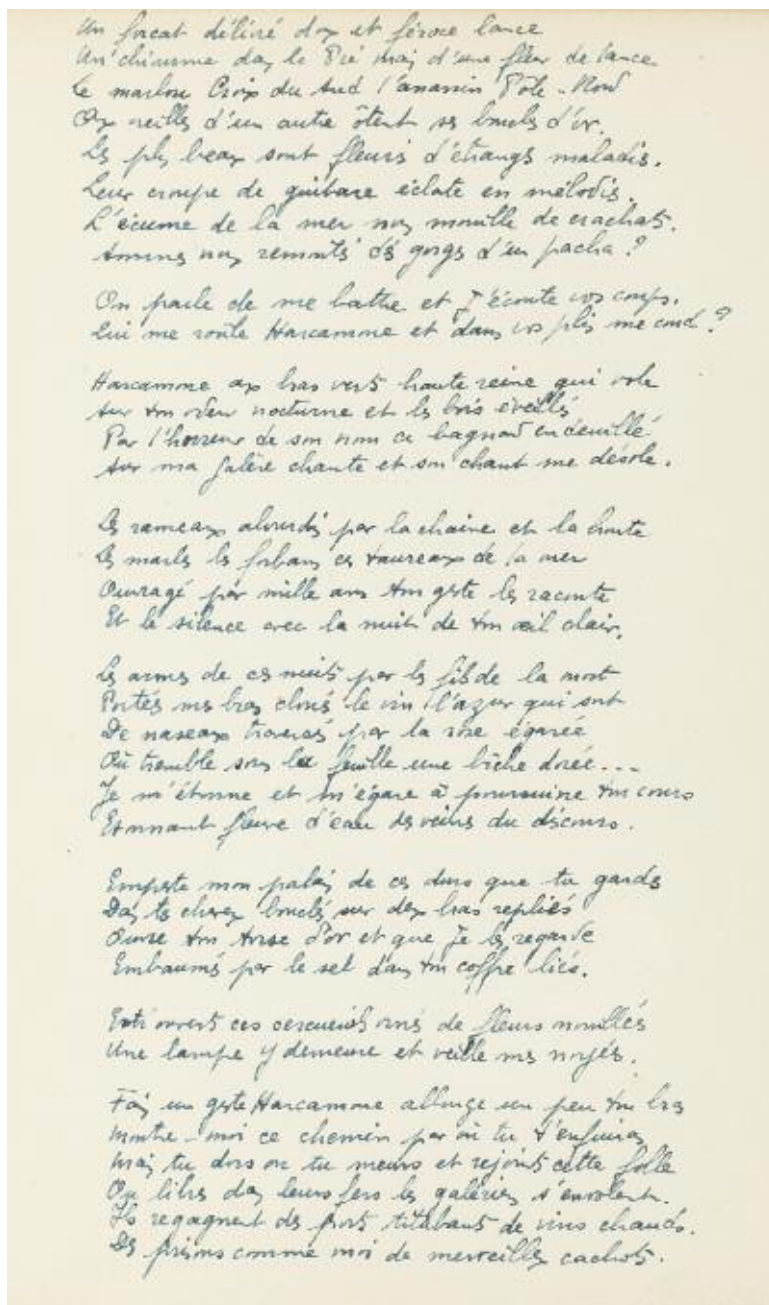 Un forçat délivré dox et féroce lance
Un chiourme dans le Pré mais d'une fleur de lance
Le marlou Croix du Sud l'assassin Pôle-Nord
Ox oreilles d'un autre ôtent ses boucles d'or.
Les plus beaux sont fleuris d'étranges maladies.
Leur croupe de guitare éclate en mélodies.
L'écume de la mer nous mouille de crachats.
Sommes nous remontés des gorges d'un pacha ?
On parle de me battre et j'écoute vos coups.
Qui me roule Harcamone et dans vos plis me coud ?
Harcamone aux bras verts haute reine qui vole
Sur ton odeur nocturne et les bois éveillés
Par l'horreur de son nom ce bagnard endeuillé
Sur ma galère chante et son chant me désole.
Les rameaux alourdis par la chaîne et la honte
Les marles les forbans ces taureaux de la mer
Ouvragé par mille ans ton geste les raconte
Et le silence avec la nuit de ton œil clair.
Les armes de ces nuits par les fils de la mort
Portés mes bras cloués le vin l'azur qui sort
De naseaux traversés par la rose égarée
Où tremble sous la feuille une biche dorée...
Je m'étonne et m'égare à poursuivre ton cours
Etonnant fleuve d'eau des veines du discours.
Empeste mon palais de ces durs que tu gardes
Dans tes cheveux bouclés sur deux bras repliés
Ouvre ton torse d'or et que je les regarde
Embaumés par le sel dans ton coffre liés.
Entr'ouverts ces cercueils ornés de fleurs mouillées
Une lampe y demeure et veille mes noyés.
Fais un geste Harcamone allonge un peu ton bras
Montre-moi ce chemin par où tu t'enfuiras
Mais tu dors ou tu meurs et rejoins cette folle
Où libres dans leurs fers les galériens s'envolent.
Ils regagnent des ports titubants de vins chauds.
Des prisons comme moi de merveilleux cachots.